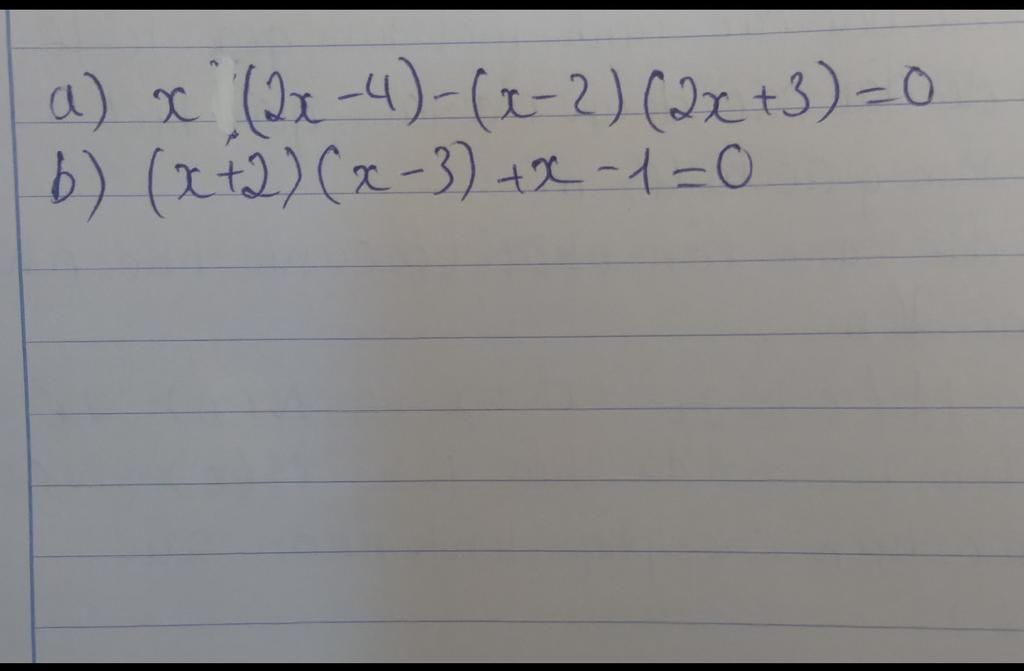 a) x (2x-4)-(x-2)(2x+3)=0
b) (x+2)(x-3)+x-1=0